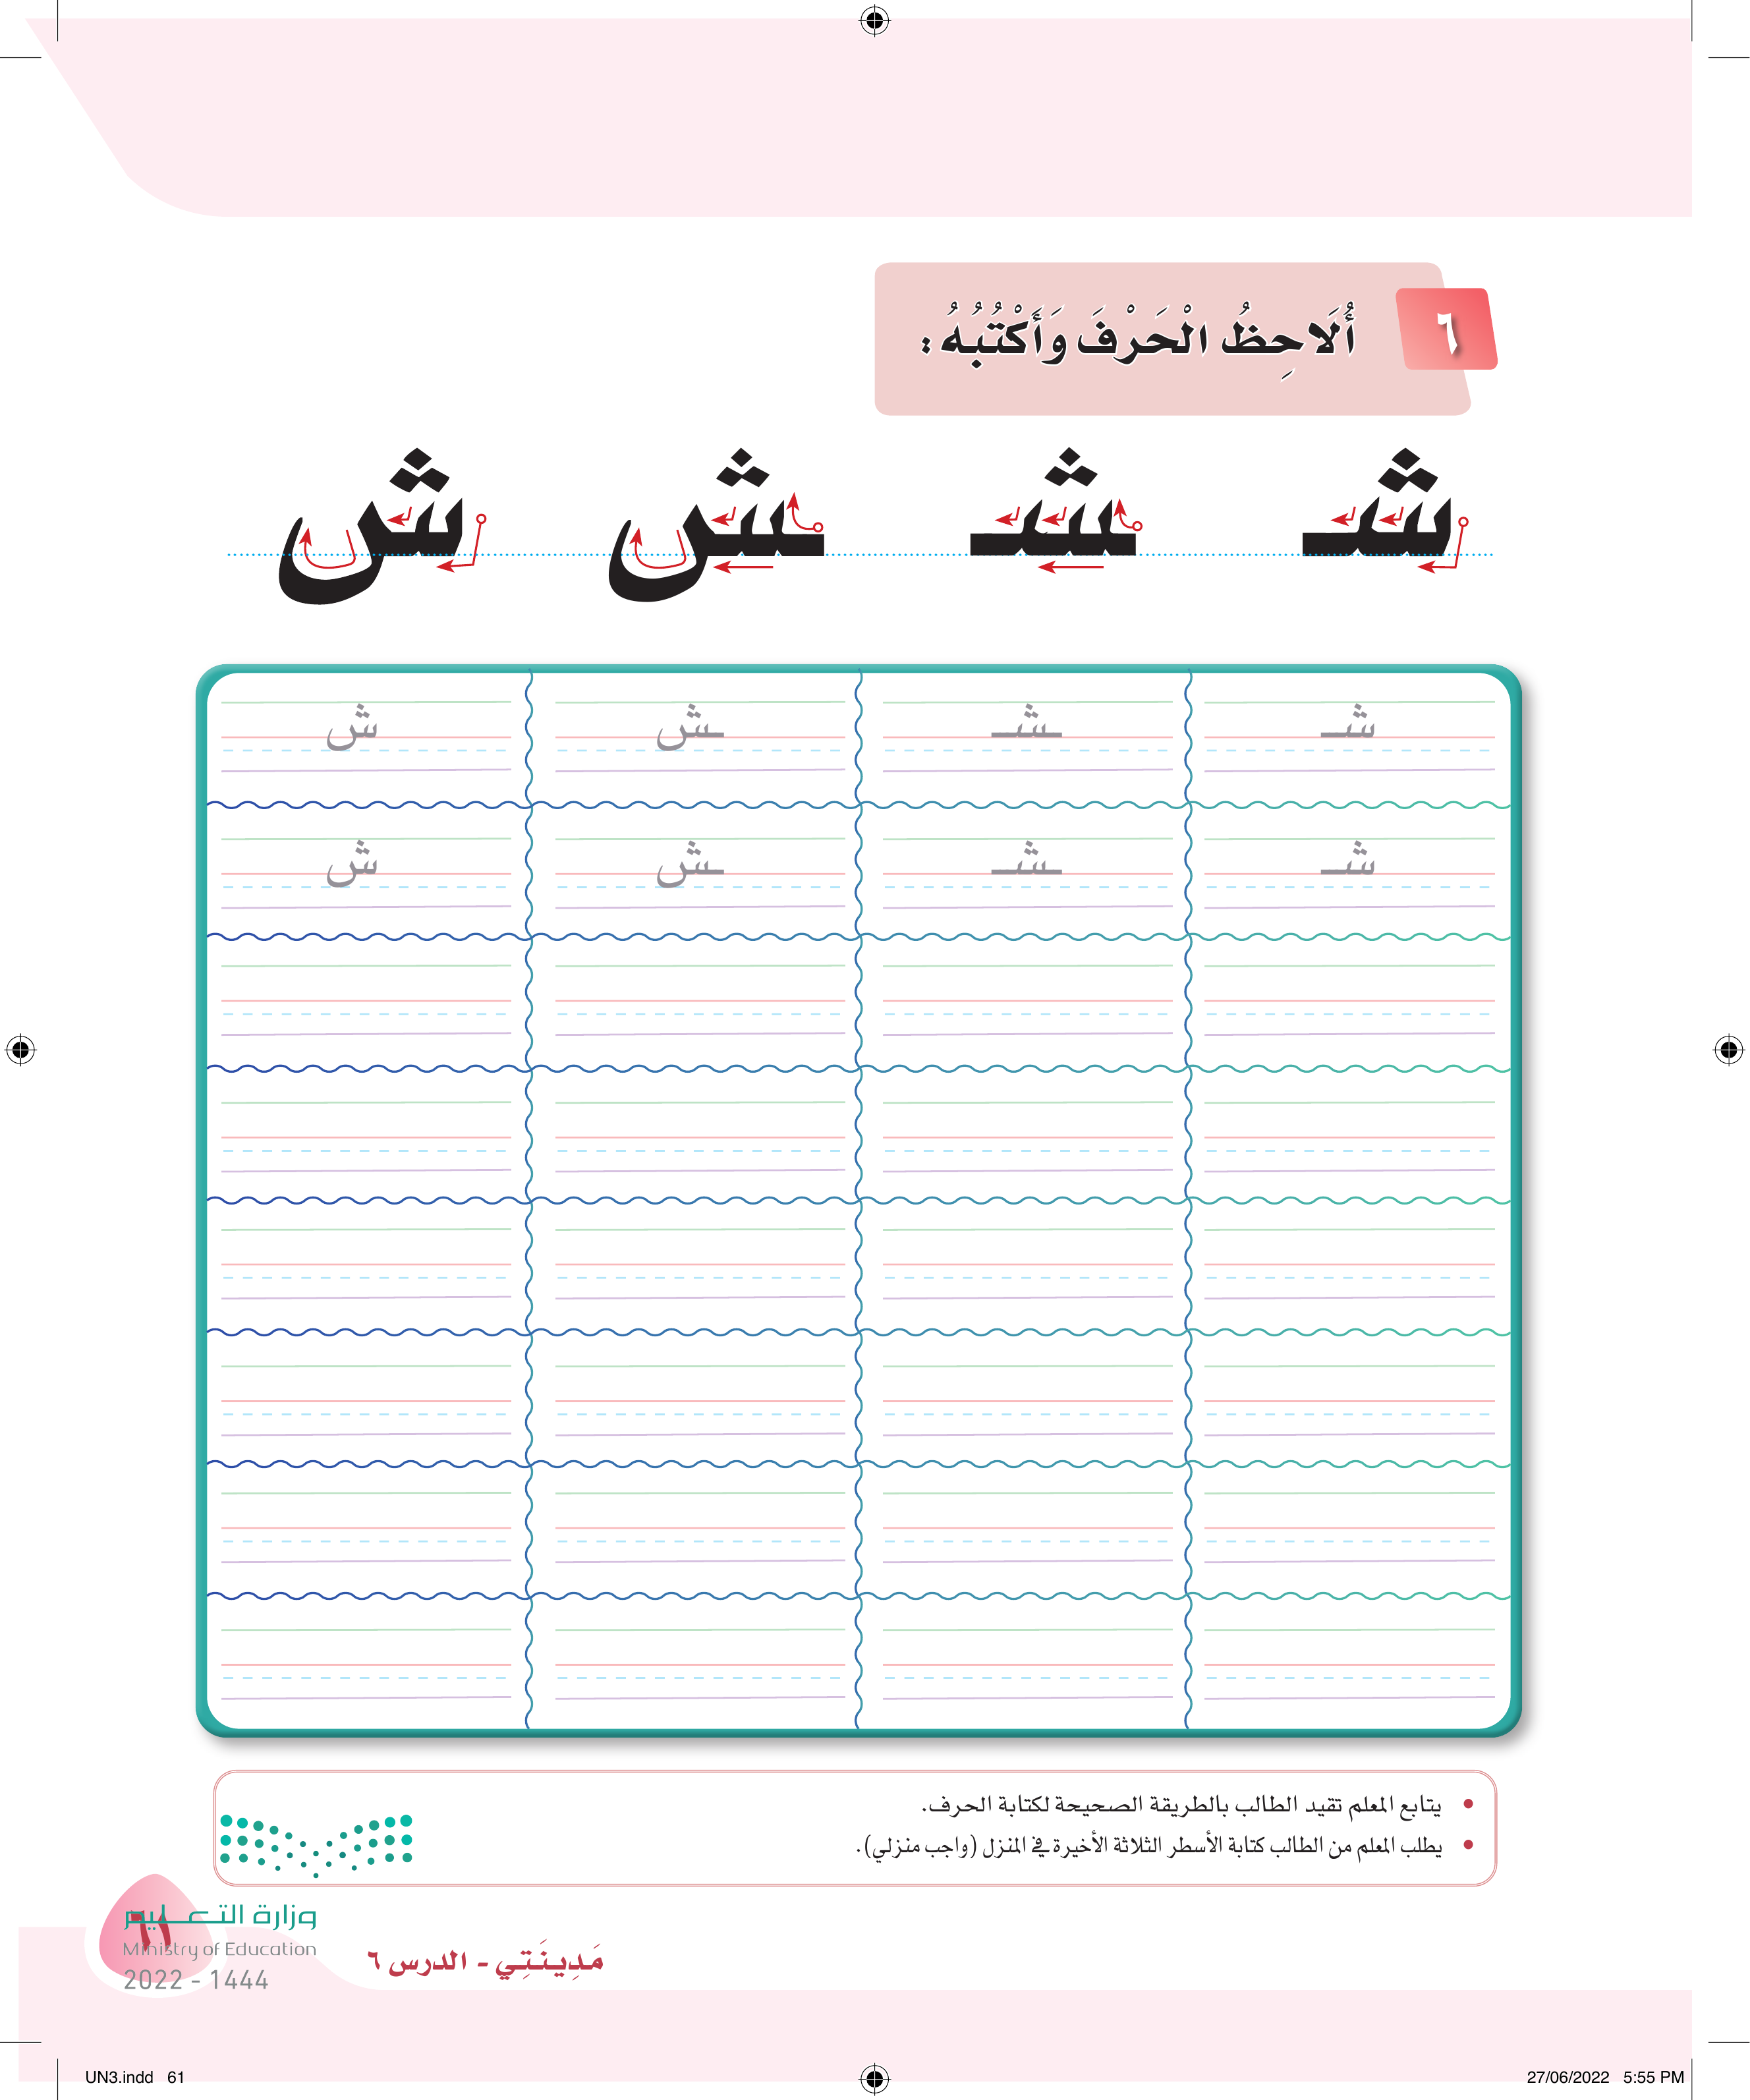 ٦
أُلَاحِظُ الْحَرْفَ وَأَكْتُبُهُ :
شـ ـشـ ـش ش
شـ ـشـ ـش ش
شـ ـشـ ـش ش
• يتابع المعلم تقيد الطالب بالطريقة الصحيحة لكتابة الحرف.
• يطلب المعلم من الطالب كتابة الأسطر الثلاثة الأخيرة في المنزل (واجب منزلي).
مَدِينَتِي - الدرس ٦
٦١
وزارة التعليم
Ministry of Education
2022 - 1444
UN3.indd 61
27/06/2022 5:55 PM